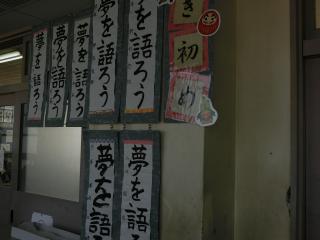 き初め
を語ろう
夢を語ろう
夢を語ろう
夢を語ろう
夢を語ろう
夢を語
夢を語